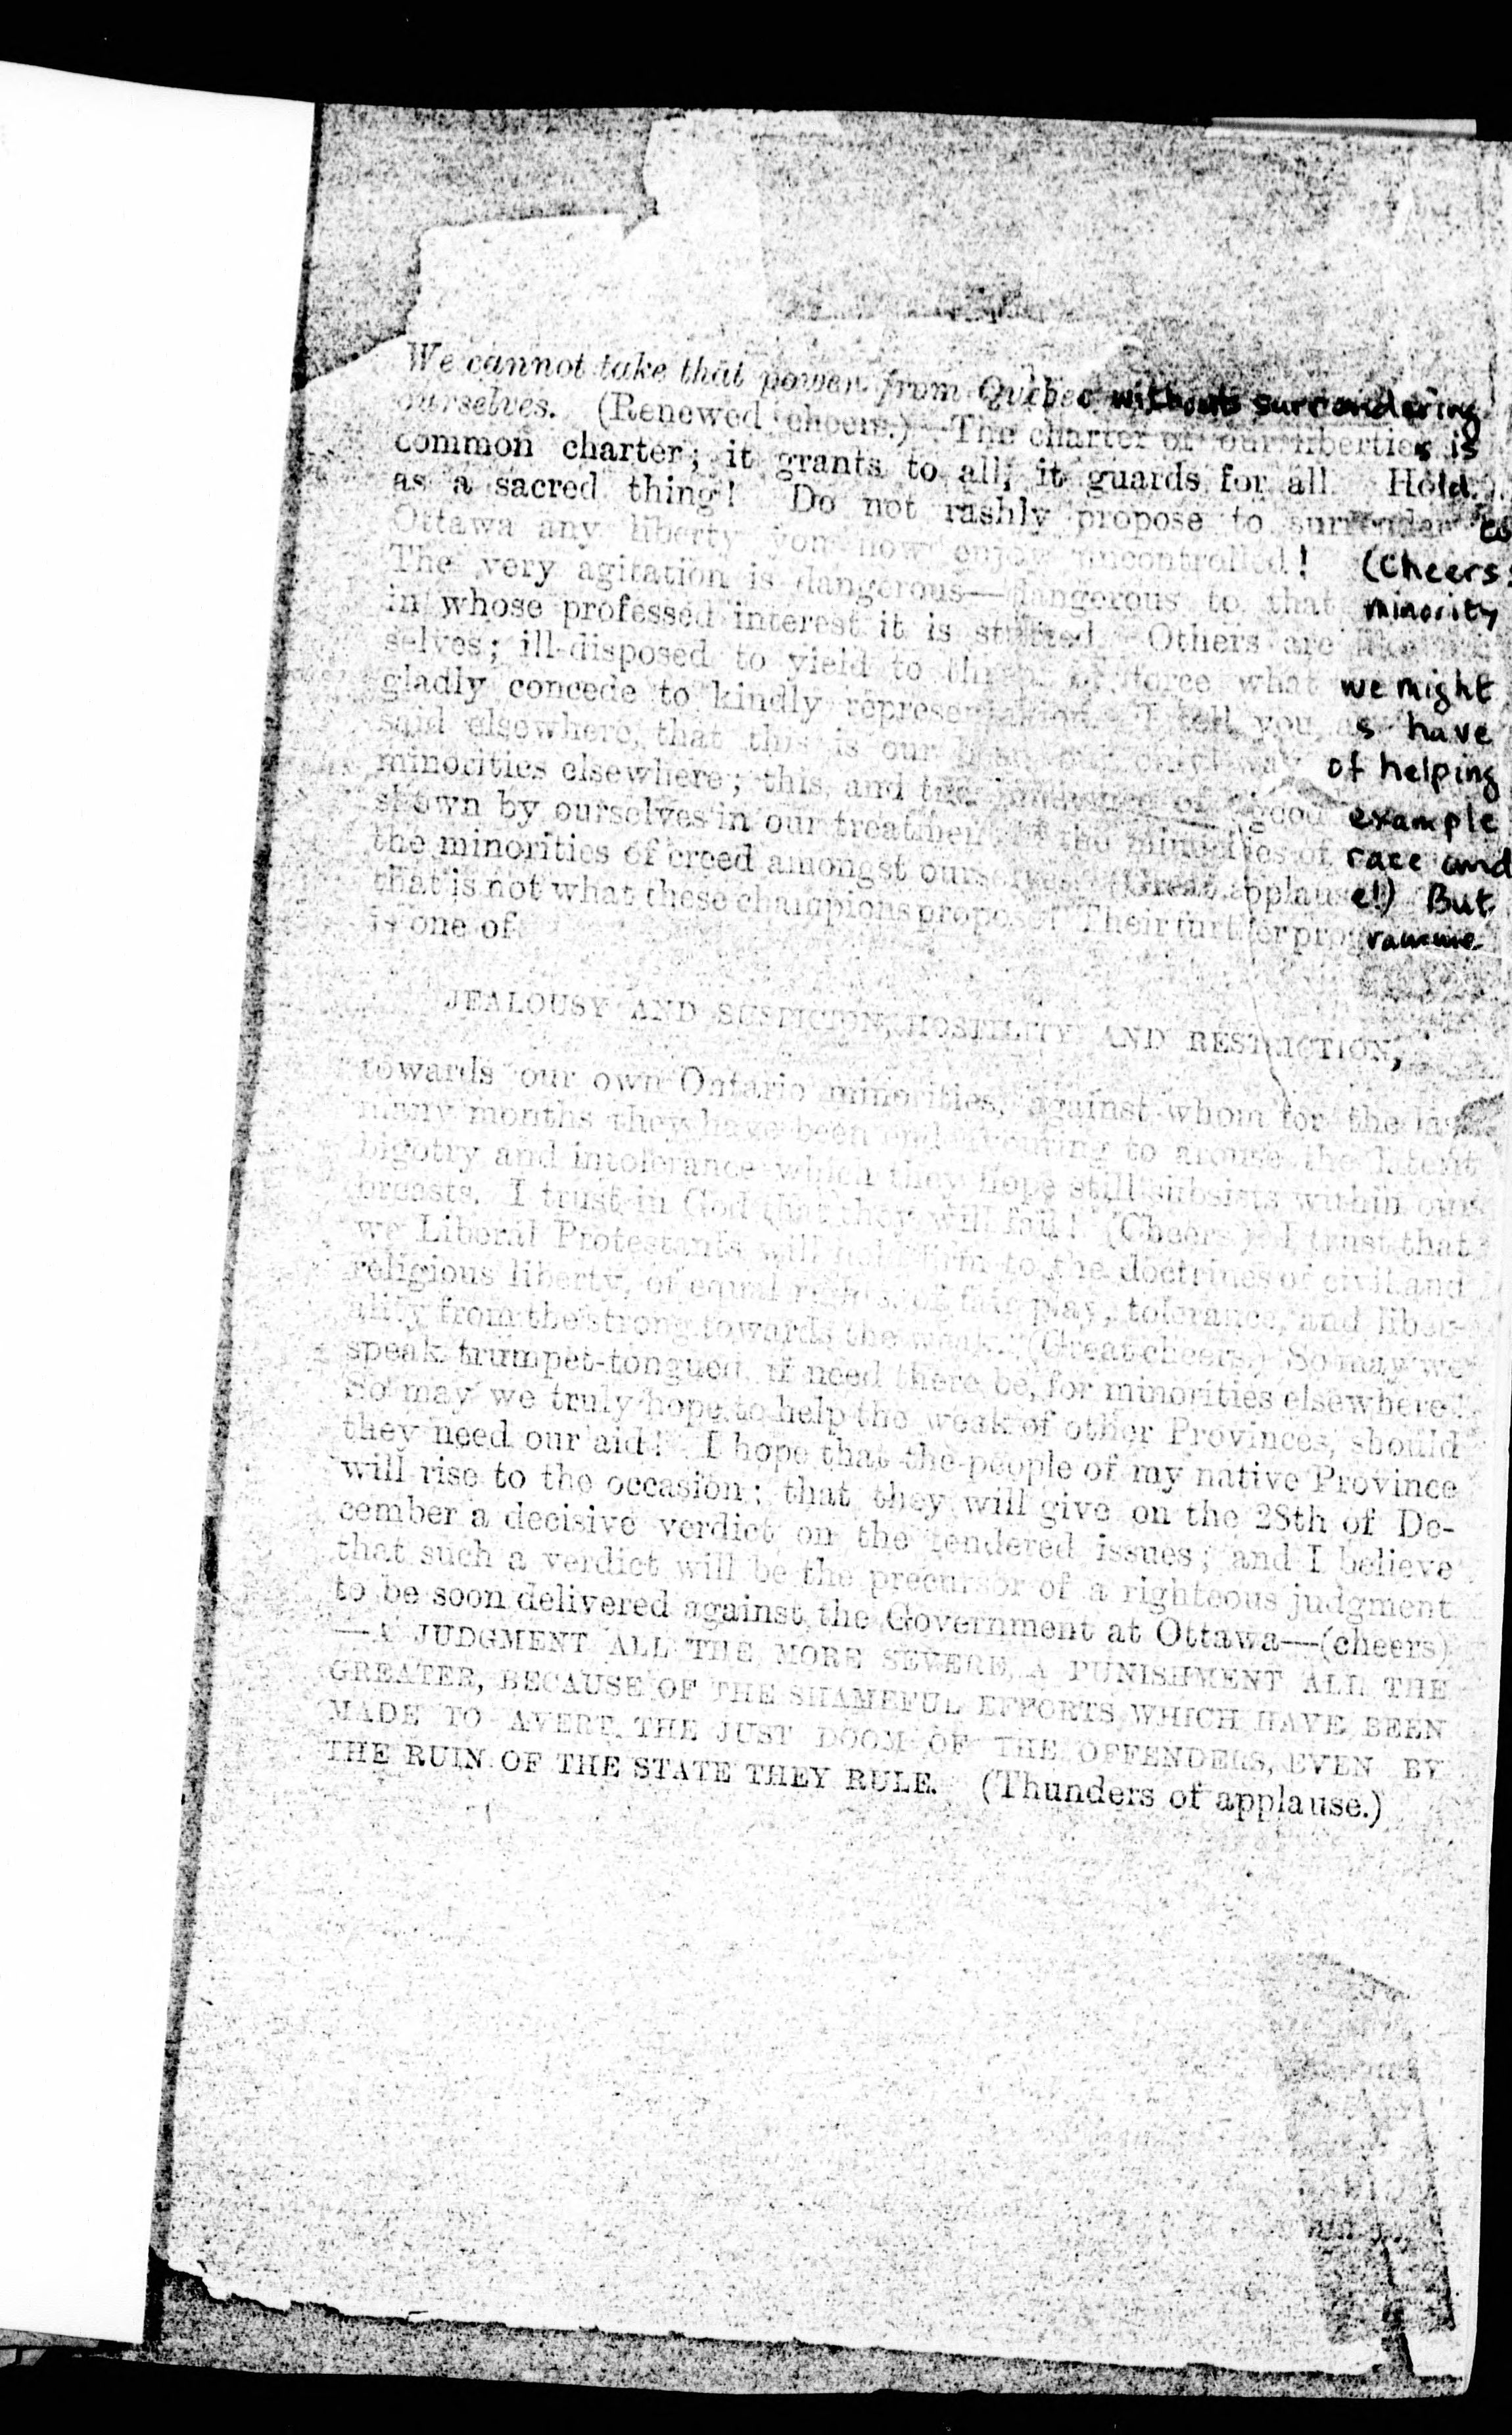 We cannot take that power from Quebec without surrendering
ourselves. (Renewed cheers.) The charter of our liberties is
common charter; it grants to all, it guards for all. Hold
as a sacred thing! Do not rashly propose to surrender to
Ottawa any liberty you now enjoy uncontrolled! (Cheers
The very agitation is dangerous—dangerous to that minority
in whose professed interest it is started. Others are like
selves; ill-disposed to yield to threat of force what we might
gladly concede to kindly representation. I tell you, as have
said elsewhere, that this is our only way of helping
minorities elsewhere; this, and the influence of good example
shown by ourselves in our treatment of the minorities of race and
the minorities of creed amongst ourselves. (Great applause!) But
that is not what these champions propose! Their further programme
is one of
JEALOUSY AND SUSPICION, HOSTILITY AND RESTRICTION,
towards our own Ontario minorities, against whom for the
many months they have been endeavouring to arouse the latent
bigotry and intolerance which they hope still subsists within our
breasts. I trust in God that they will fail! (Cheers.) I trust that
we Liberal Protestants will hold firm to the doctrines of civil and
religious liberty, of equal rights, of fair play, tolerance, and liber-
ality from the strong towards the weak. (Great cheers.) So may we
speak trumpet-tongued, if need there be, for minorities elsewhere!
So may we truly hope to help the weak of other Provinces, should
they need our aid! I hope that the people of my native Province
will rise to the occasion; that they will give on the 28th of De-
cember a decisive verdict on the tendered issues; and I believe
that such a verdict will be the precursor of a righteous judgment
to be soon delivered against the Government at Ottawa—(cheers)
—A JUDGMENT ALL THE MORE SEVERE, A PUNISHMENT ALL THE
GREATER, BECAUSE OF THE SHAMEFUL EFFORTS WHICH HAVE BEEN
MADE TO AVERT THE JUST DOOM OF THE OFFENDERS, EVEN BY
THE RUIN OF THE STATE THEY RULE. (Thunders of applause.)